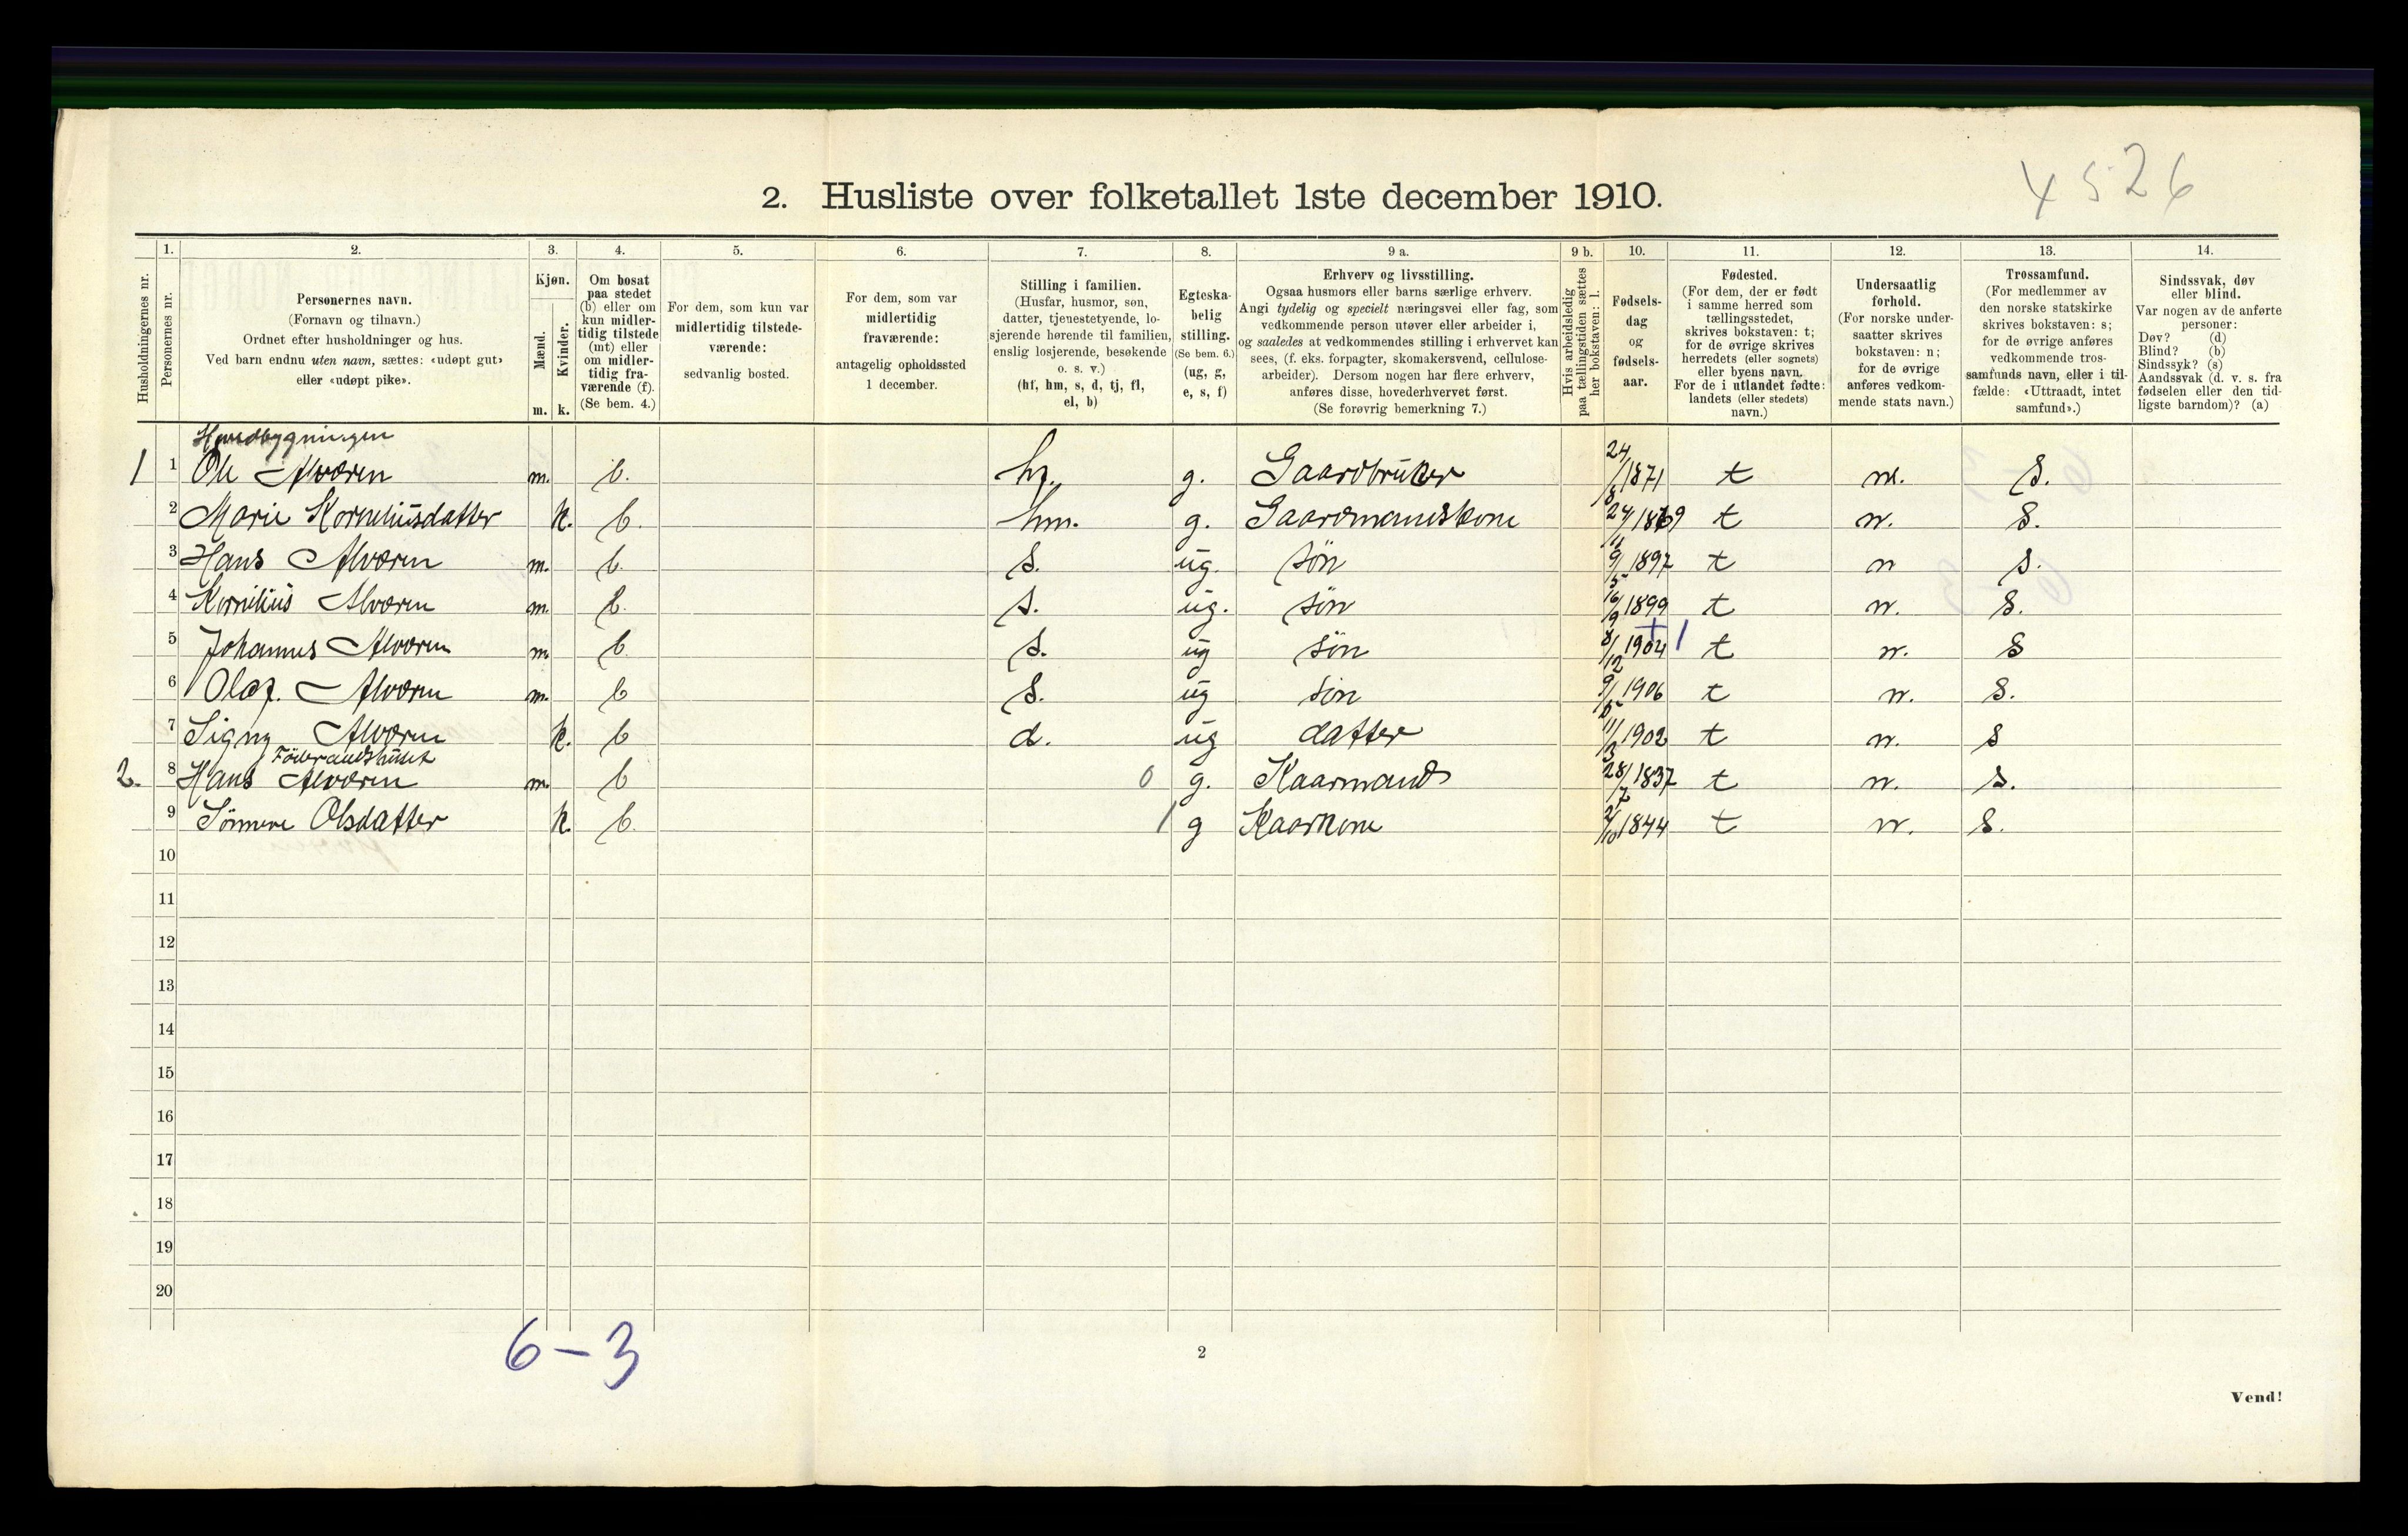 4526
2. Husliste over folketallet 1ste december 1910.
Husholdningernes nr.
1.
Personernes nr.
2.
Personernes navn.
(Fornavn og tilnavn.)
Ordnet efter husholdninger og hus.
Ved barn endnu uten navn, sættes: «udøpt gut»
eller «udøpt pike».
3.
Kjøn.
Mænd.
Kvinder.
m. k.
4.
Om bosat
paa stedet
(b) eller om
kun midler-
tidig tilstede
(mt) eller
om midler-
tidig fra-
værende (f).
(Se bem. 4.)
5.
For dem, som kun var
midlertidig tilstede-
værende:
sedvanlig bosted.
6.
For dem, som var
midlertidig
fraværende:
antagelig opholdssted
1 december.
7.
Stilling i familien.
(Husfar, husmor, søn,
datter, tjenestetyende, lo-
sjerende hørende til familien,
enslig losjerende, besøkende
o. s. v.)
(hf, hm, s, d, tj, fl,
el, b)
8.
Egteska-
belig
stilling.
(Se bem. 6.)
(ug, g,
e, s, f)
9 a.
Erhverv og livsstilling.
Ogsaa husmors eller barns særlige erhverv.
Angi tydelig og specielt næringsvei eller fag, som
vedkommende person utøver eller arbeider i,
og saaledes at vedkommendes stilling i erhvervet kan
sees, (f. eks. forpagter, skomakersvend, cellulose-
arbeider). Dersom nogen har flere erhverv,
anføres disse, hovederhvervet først.
(Se forøvrig bemerkning 7.)
9 b.
Hvis arbeidsledig
paa tællingstiden sættes
her bokstaven: l.
10.
Fødsels-
dag
og
fødsels-
aar.
11.
Fødested.
(For dem, der er født
i samme herred som
tællingsstedet,
skrives bokstaven: t;
for de øvrige skrives
herredets (eller sognets)
eller byens navn.
For de i utlandet fødte:
landets (eller stedets)
navn.)
12.
Undersaatlig
forhold.
(For norske under-
saatter skrives
bokstaven: n;
for de øvrige
anføres vedkom-
mende stats navn.)
13.
Trossamfund.
(For medlemmer av
den norske statskirke
skrives bokstaven: s;
for de øvrige anføres
vedkommende tros-
samfunds navn, eller i til-
fælde: «Uttraadt, intet
samfund».)
14.
Sindssvak, døv
eller blind.
Var nogen av de anførte
personer:
Døv? (d)
Blind? (b)
Sindssyk? (s)
Aandssvak (d. v. s. fra
fødselen eller den tid-
ligste barndom)? (a)
Hovedbygningen
1 1 Ole Alværen m. b. hf. g. Gaardbruker 24/8 1871 t n. S.
2 Marie Korneliusdatter k. b. hm. g. Gaardmandskone 24/11 1869 t n. S.
3 Hans Alværen m. b. s. ug. søn 9/5 1897 t n s.
4 Kornilius Alværen m. b. s. ug. søn 16/9 1899 t n. S.
5 Johannes Alværen m. b. s. ug søn 8/12 1904 1 t n. S
6 Olaf. Alværen m. b S. ug søn 9/5 1906 t n. S.
7 Signy Alværen k. b d. ug datter 11/3 1902 t n. s
Föderaadshuset
2. 8 Hans Alværen m. b 0 g. Kaarmand 28/7 1837 t n. s.
9 Sønneve Olsdatter k. b. 1 g Kaarkone 2/10 1844 t n. S.
10
11
12
13
14
15
16
17
18
19
20
6-3
2
Vend!